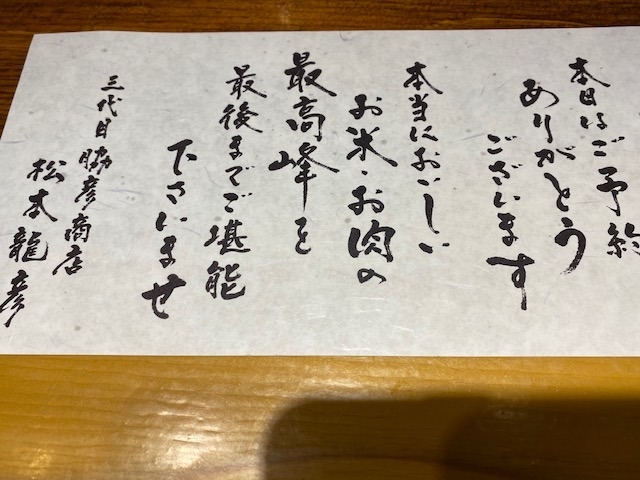 本日はご予約
ありがとう
ございます
本当においしい
お米・お肉の
最高峰を
最後までご堪能
下さいませ
三代目脇彦商店
松本龍彦